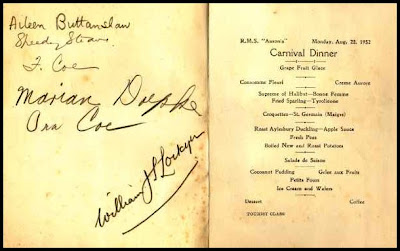 Aileen Buttanshaw
J. Coe
Marian Doepke
Ora Coe
William H Lockyer
R.M.S. "Ausonia" Monday, Aug. 25, 1952
Carnival Dinner
Grape Fruit Glacé
Consomme Fleuri Creme Aurore
Supreme of Halibut—Bonne Femme
Fried Sparling—Tyrolienne
Croquettes—St. Germain (Maigre)
Roast Aylesbury Duckling—Apple Sauce
Fresh Peas
Boiled New and Roast Potatoes
Salade de Saison
Cocoanut Pudding Gelee aux Fruits
Petits Fours
Ice Cream and Wafers
Dessert Coffee
TOURIST CLASS